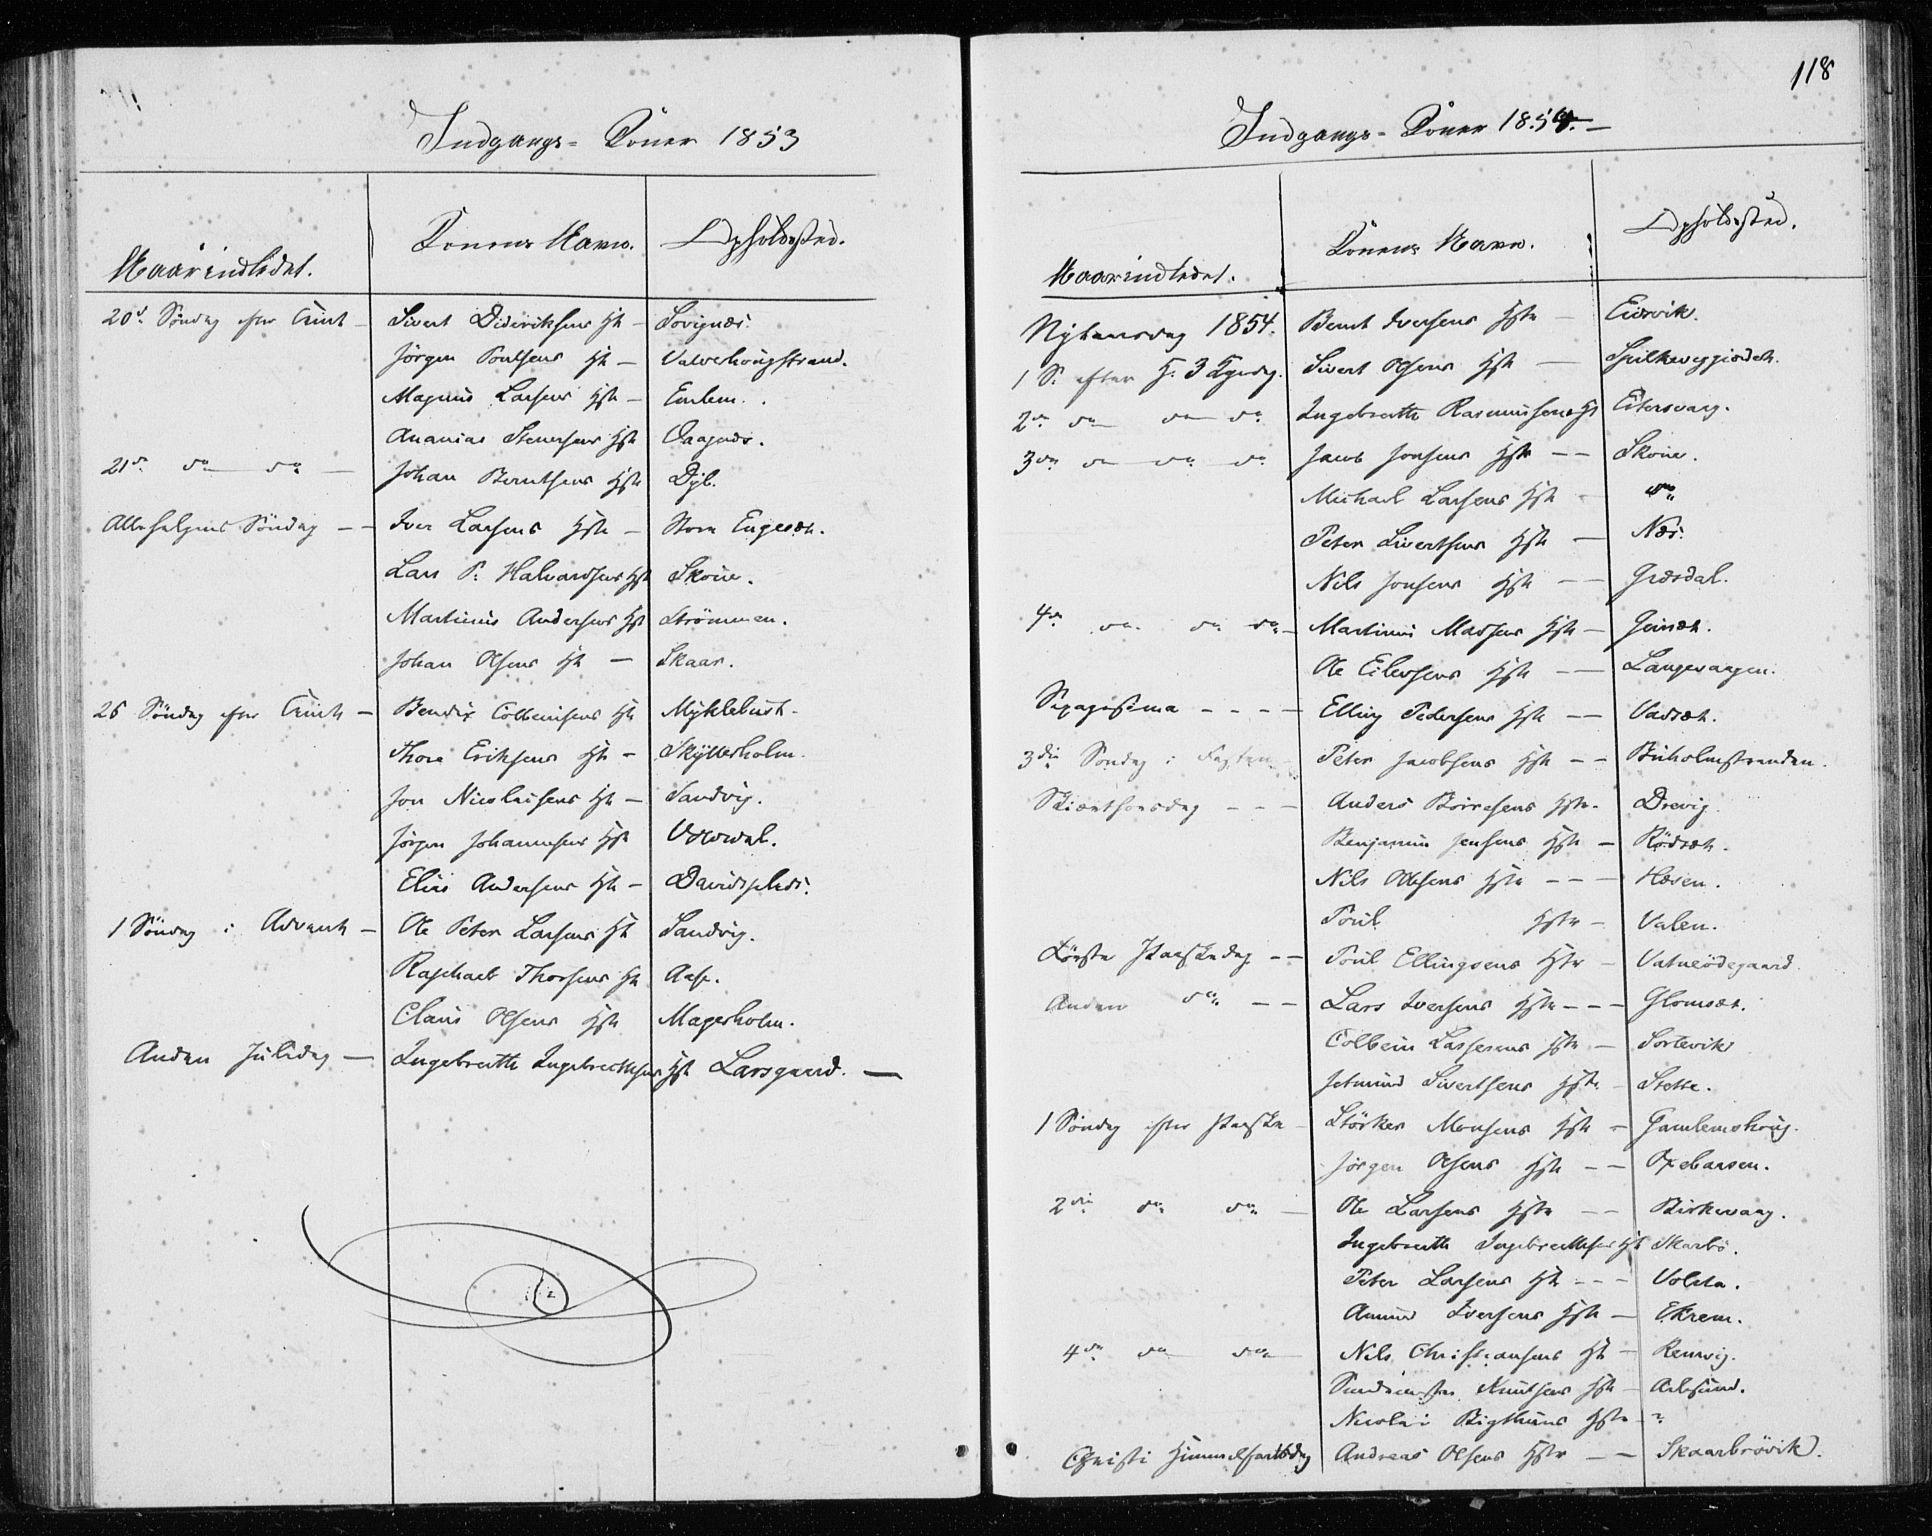 Indgangs-Koner 1853
Naar indledet. Konens Navn. Opholdssted.
20de Søndag efter Trinit Sivert Dideriksens Hst Sovignæs.
Jørgen Poulsens Hst Valderhougstrand.
Magnus Larsens Hst Emlem.
Ananias Stenersens Hst
21de do do Johan Berntsens Hst
Allehelgens Søndag Iver Larsens Hst Store Engesæt.
Lars P. Halvardsens Hst Skone.
Martinus Andersens Hst Strömmen.
Johan Olsens Hst Skaar.
26 Søndag efter Trinit Bendix Colbeinsens Hst Myklebust.
Thore Eriksens Hst Skytterholm.
Jon Nicolaisens Hst Sandvig.
Jörgen Johannesens Hst
Elias Andersens Hst
1 Søndag i Advent Ole Peter Larsens Hst Sandvig.
Raphael Thorsens Hst Aase.
Claus Olsens Hst Magerholm.
Anden Juledag Ingebrecth Ingebrecthsens Hst Larsgaard.
118
Indgangs-Koner 1854.
Naar indledet. Konens Navn. Opholdssted.
Nytaarsdag 1854. Bernt Iversens Hstr Eidsvik.
1 S. efter H. 3 Kgrdg. Sivert Olsens Hst
2de do do do Ingebrecth Rasmussens Hst
3die do do do Jacob Jonsens Hstr Skone.
Michael Larsens Hst do
Peter Sivertsens Hst Næs.
Nils Jonsens Hst Græsdal.
4de do do do Martinus Madsens Hst
Ole Eilersens Hst Langevaagen.
Sexagesima Elling Pedersens Hst Vadsæt.
3die Søndag i Fasten Peter Jacobsens Hst Buholmstranden.
Skiærthorsdag Anders Hstr. Drevig.
Benjamin Jensens Hstr Rödsæt.
Nils Olsens Hstr Hæsen.
Poul Hstr Valen.
Første Paaskedag Poul Ellingsens Hstr Vatneödegaard.
Anden do Lars Iversens Hstr Glomsæt.
Colbein Lassesens Hstr Sortevik
Jetmund Sivertsens Hstr Stette.
1 Søndag efter Paaske Störker Monsens Hst Gamlemshoug.
Jørgen Olsens Hst Oxebaasen.
2den do do Ole Larsens Hstr Birkevaag.
Ingebrecth Ingebrecthsens Hst Skarbö.
Peter Larsens Hst Volsta.
Amund Iversens Hst Ekrem.
4de do do Nils Christiansens Hst Remvig.
Knutsens Hst Aalesund.
Nicolai Hstr
Christi Himmelfartsdag Andreas Olsens Hstr Skaarbrövik.